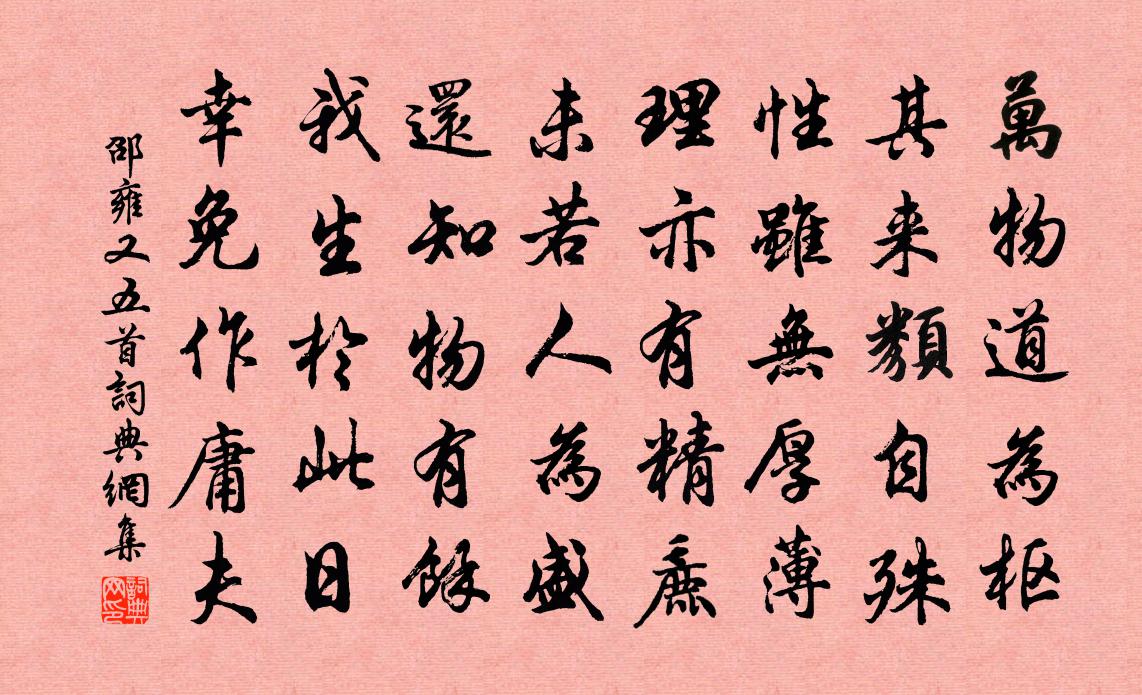 萬物道為枢
其来類自殊
性雖無厚薄
理亦有精麁
未若人為盛
還知物有餘
我生於此日
幸免作庸夫
邵雍又五首詞典網集
詞典网印